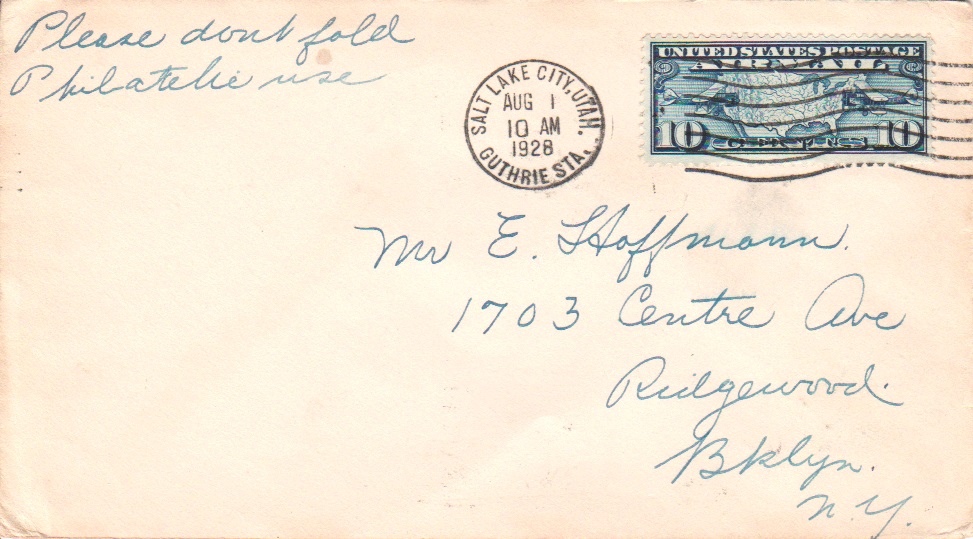 Please dont fold
Philatelic use
SALT LAKE CITY, UTAH.
AUG 1
10 AM
1928
GUTHRIE STA.
UNITED STATES POSTAGE
AIR MAIL
10 CENTS 10
Mr E. Hoffmann.
1703 Centre Ave
Ridgewood.
Bklyn.
N.Y.